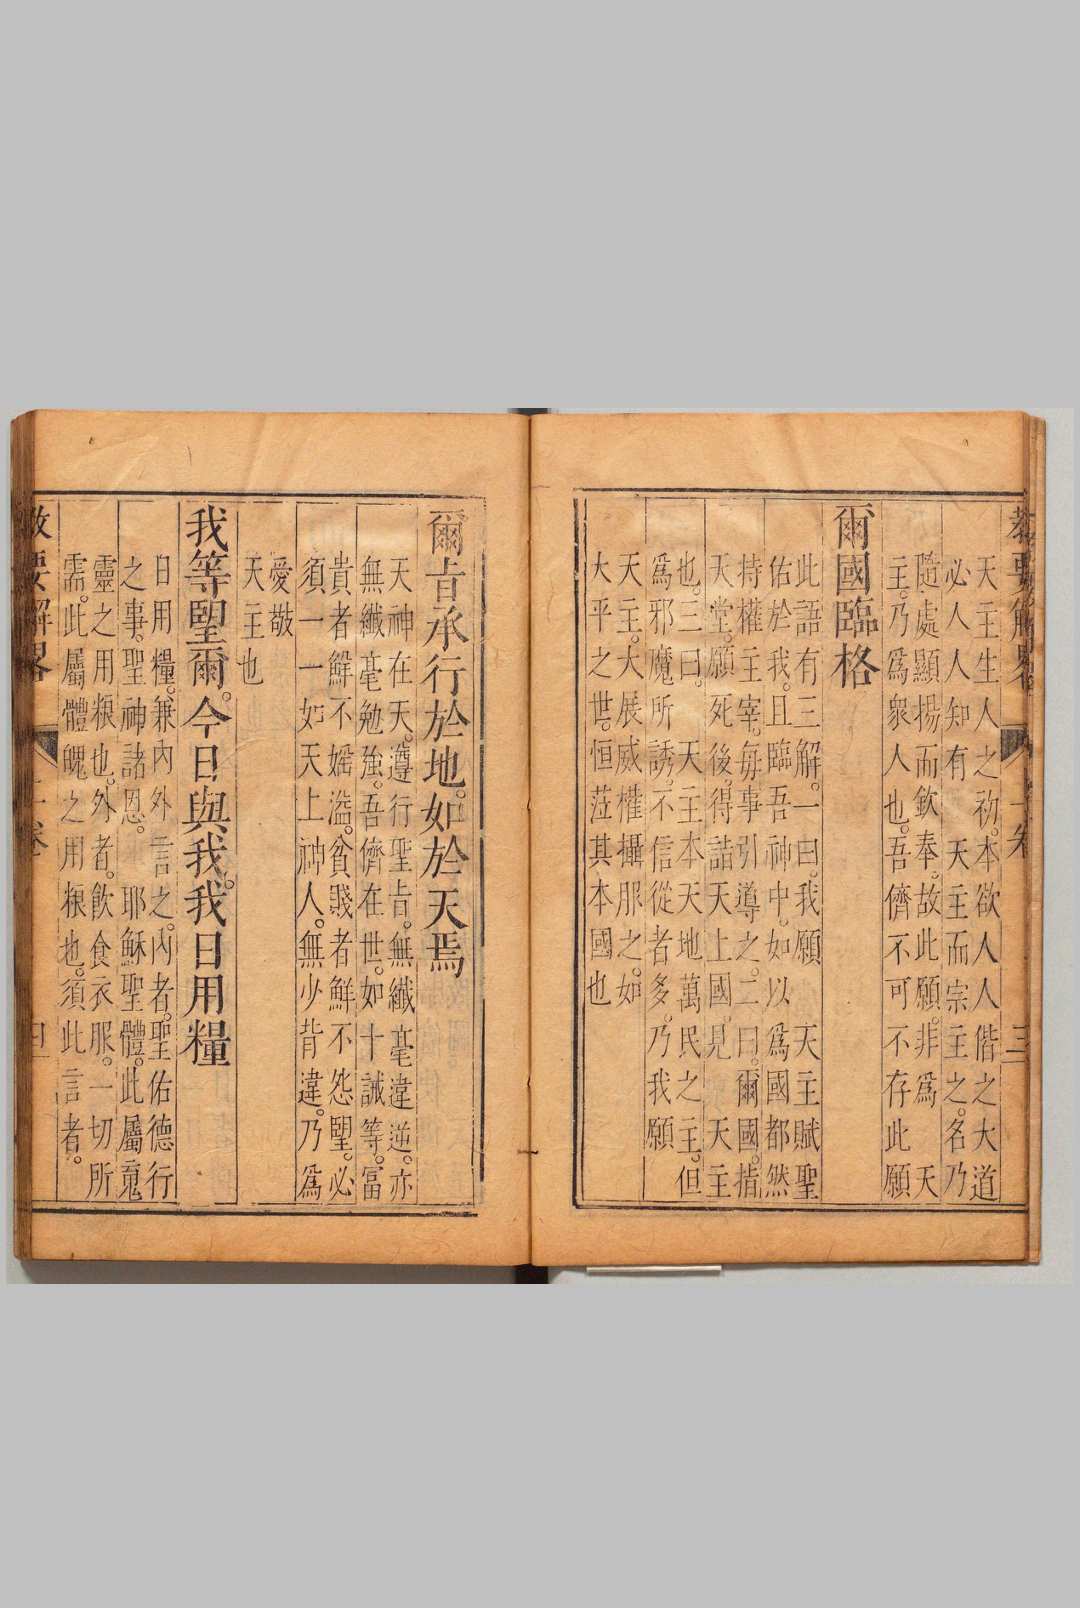 天主生人之初。本欲人人偕之大道
必人人知有 天主而宗主之。名乃
隨處顯揚而欽奉。故此願。非爲 天
主。乃爲衆人也。吾儕不可不存此願
爾國臨格
此語有三解。一曰。我願 天主賦聖
佑於我。且臨吾神中。如以爲國都然
持權主宰。每事引導之。二曰。爾國。指
天堂。願死後。得詰天上國。見 天主
也。三曰。 天主本天地萬民之主。但
爲邪魔所誘。不信從者多。乃我願
天主。大展威權攝服之。如
大平之世。恒蒞其本國也
教要解畧 上卷 三
爾旨承行於地。如於天焉
天神在天。遵行聖旨。無纖毫違逆。亦
無纖毫勉強。吾儕在世。如十誡等。富
貴者鮮不婬溢。貧賤者鮮不怨朢。必
須一一如天上神人。無少背違。乃爲
愛敬
天主也
我等朢爾。今日與我。我日用糧
日用糧。兼內外言之。內者。聖佑德行
之事。聖神諸恩。 耶穌聖體。此屬䰟
靈之用粮也。外者。飲食衣服。一切所
需。此屬體魄之用粮也。須此言者。
教要解畧 上卷 四